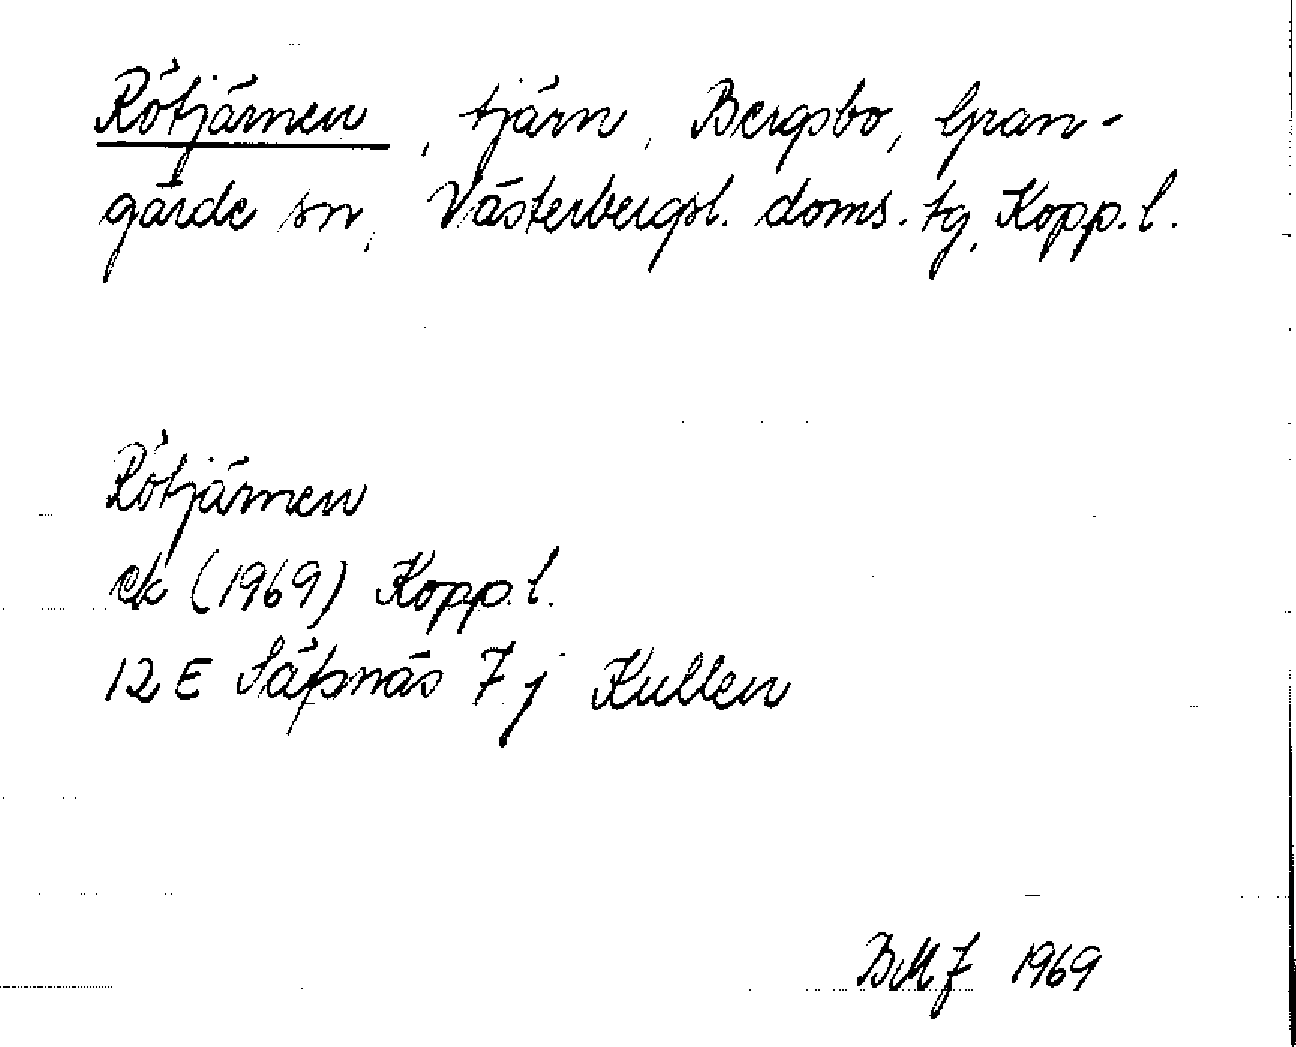 Rötjärnen, tjärn, Bergsbo, Gran-
gärde sn, Västerbergsl. doms. tg, Kopp. l.
Rötjärnen
ek (1969) Kopp. l.
12 E Säfsnäs 7 j Kullen
BMJ 1969